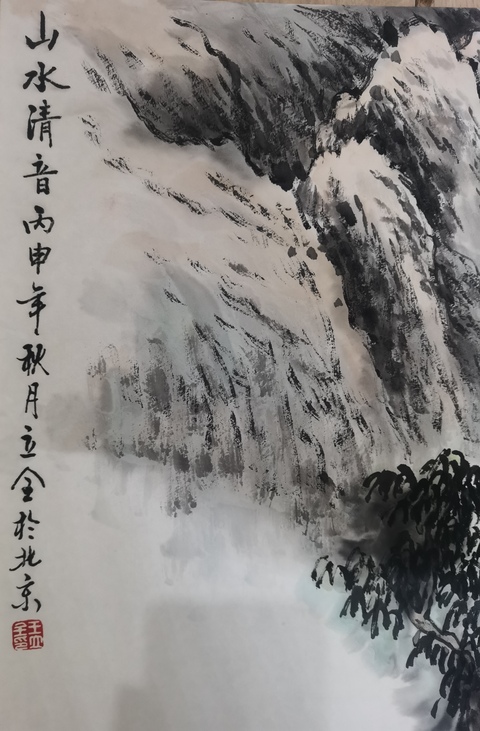 山水清音丙申年秋月立全於北京